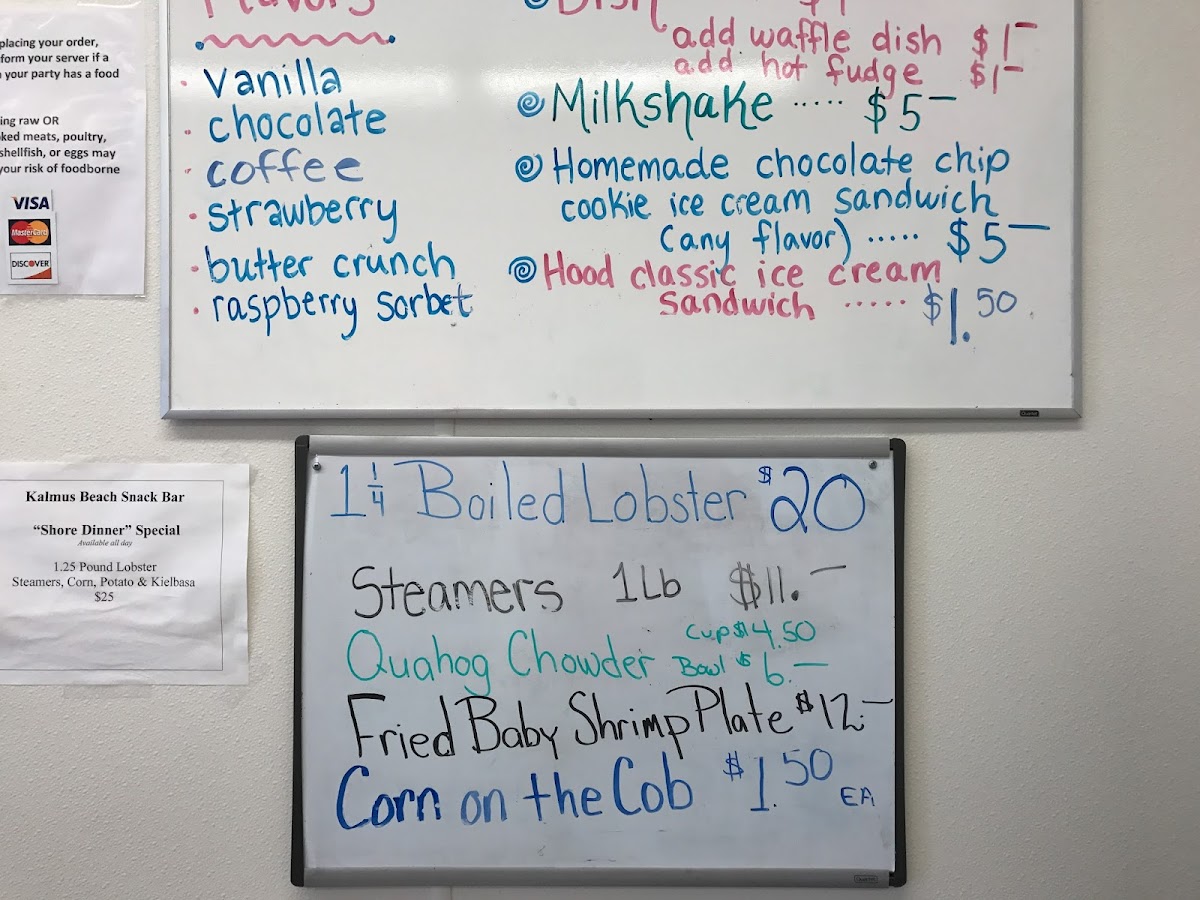 placing your order,
form your server if a
your party has a food
ing raw OR
ked meats, poultry,
shellfish, or eggs may
your risk of foodborne
VISA
MasterCard
DISCOVER
Flavors
vanilla
chocolate
coffee
strawberry
butter crunch
raspberry sorbet
Dish
add waffle dish $1—
add hot fudge $1—
Milkshake ..... $5—
Homemade chocolate chip
cookie ice cream sandwich
(any flavor) ..... $5—
Hood classic ice cream
sandwich ..... $1.50
Quartet
Kalmus Beach Snack Bar
“Shore Dinner” Special
Available all day
1.25 Pound Lobster
Steamers, Corn, Potato & Kielbasa
$25
1 1/4 Boiled Lobster $20
Steamers 1Lb $11.—
Quahog Chowder Cup $4.50
Bowl $6.—
Fried Baby Shrimp Plate $12.—
Corn on the Cob $1.50 EA